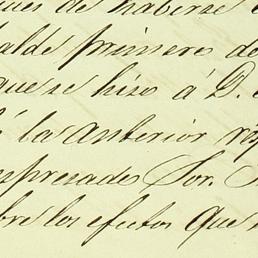 ques de haberse
alde primero de
que se hiso á D.
la anterior
espresado Sor.
bre los efectos que